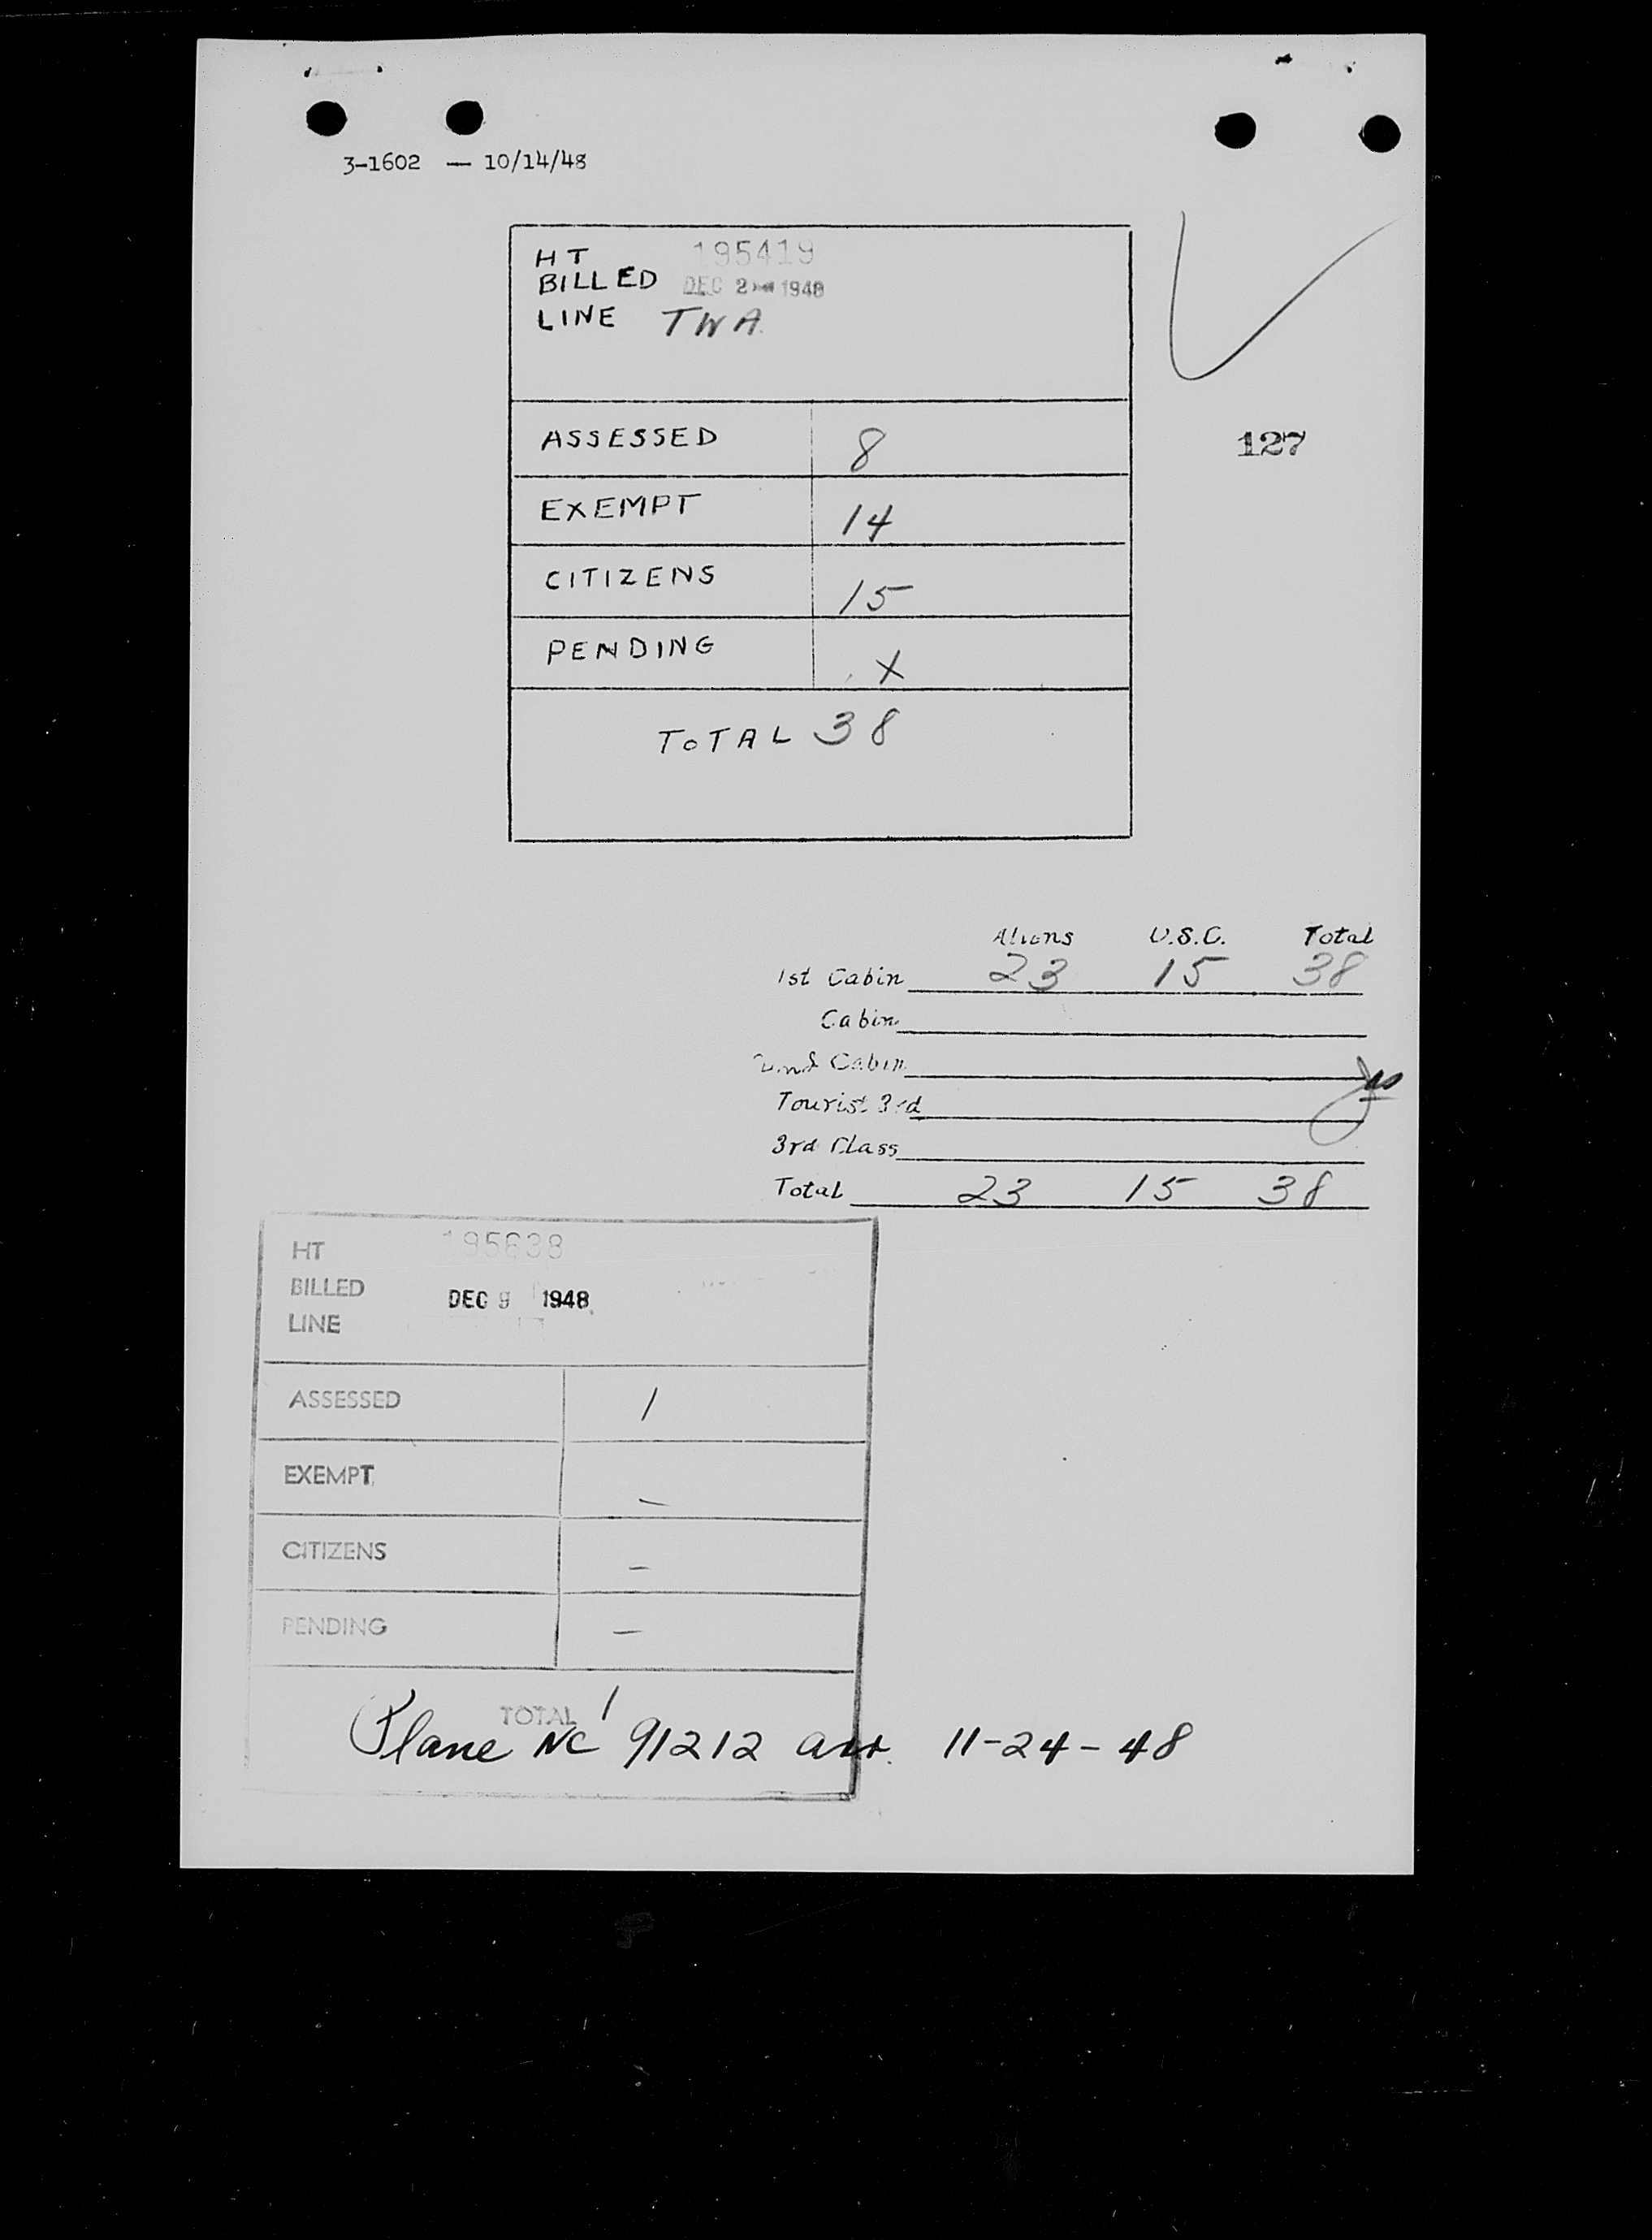 3-1602 — 10/14/48
HT 195419
BILLED DEC 2 1948
LINE TWA
ASSESSED 8
127
EXEMPT 14
CITIZENS 15
PENDING X
TOTAL 38
Aliens U.S.C. Total
1st Cabin 23 15 38
Cabin
2nd Cabin
Tourist 3rd
3rd Class
Total 23 15 38
HT 195638
BILLED DEC 9 1948
LINE
ASSESSED 1
EXEMPT —
CITIZENS —
PENDING —
TOTAL 1
Plane NC 91212 arr. 11-24-48